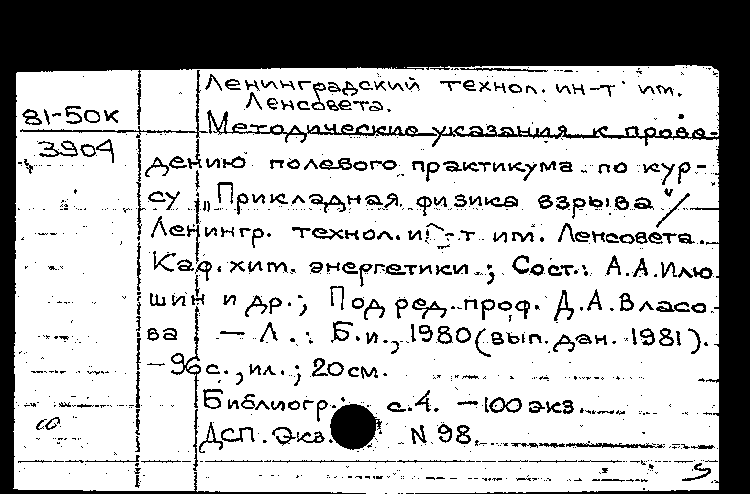 Ленинградский технол. ин-т им.
Ленсовета.
81-50к
Методические указания к прове-
3904
дению полевого практикума по кур-
су „Прикладная физика взрыва"/
Ленингр. технол. ин-т им. Ленсовета.
Каф. хим. энергетики.; Сост.: А.А.Илю
шин и др.; Под ред. проф. Д.А.Власо-
ва — Л.: Б.и., 1980 (вып. дан. 1981).
—96с., ил.; 20см.
Библиогр.: с.4. —100 экз.
ДСП. Экз. N 98.